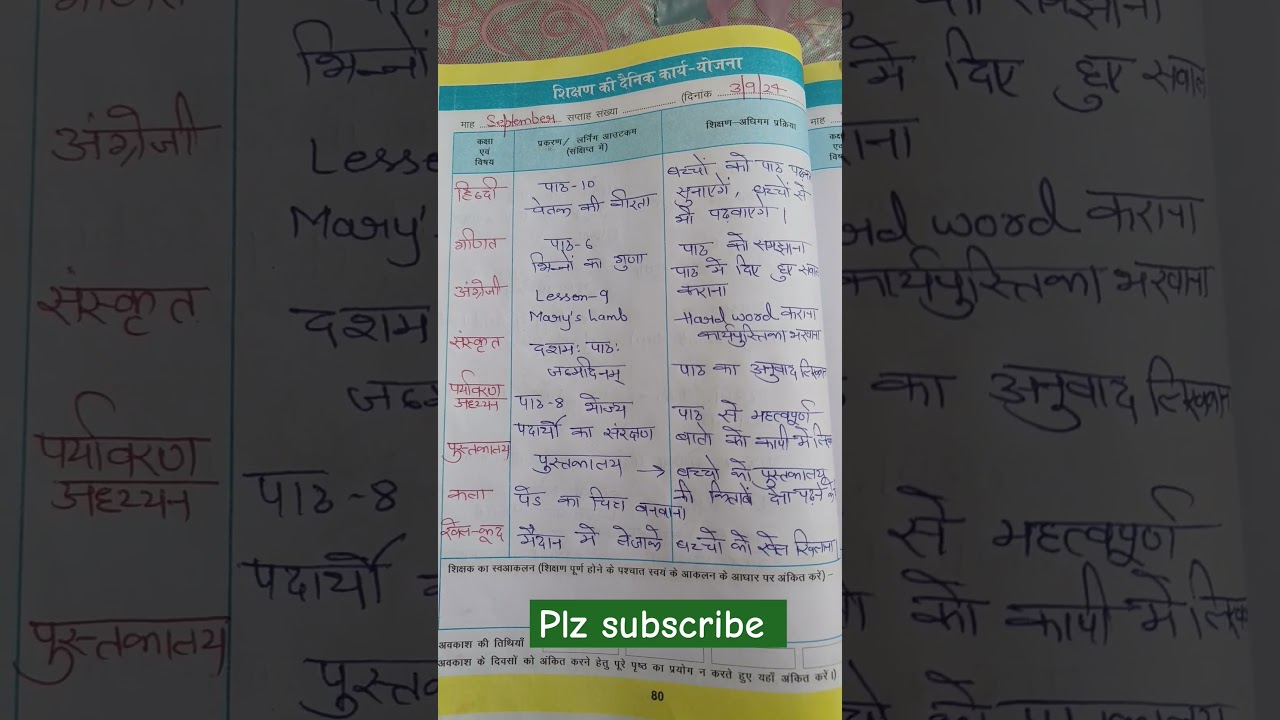 शिक्षण की दैनिक कार्य-योजना
माह September सप्ताह संख्या (दिनांक 3/9/24
कक्षा एवं विषय
प्रकरण/ लर्निंग आउटकम (संक्षिप्त में)
शिक्षण-अधिगम प्रक्रिया
हिन्दी
पाठ-10
चेतक की वीरता
बच्चों को पाठ पढ़कर
सुनाएगें, बच्चों से
भी पढवाएगे।
गणित
पाठ-6
भिन्नों का गुणा
पाठ को समझाना
पाठ में दिए हुए सवाल
कराना
अंग्रेजी
Lesson-9
Mary's Lamb
Hard word कराना
कार्यपुस्तिका भरवाना
संस्कृत
दशमः पाठः
जन्मदिनम्
पाठ का अनुवाद लिखवाना
पर्यावरण
अध्ययन
पाठ-8 भोज्य
पदार्थो का संरक्षण
पाठ से महत्वपूर्ण
बातो को कापी मे
पुस्तकालय
पुस्तकालय →
बच्चो को पुस्तकालय
की किताबें देना पढ़ने को
कला
पेड का चित्र बनवाना
खेल-कूद
मैदान में लेजाके
बच्चो को खेल खिलाना
शिक्षक का स्वआकलन (शिक्षण पूर्ण होने के पश्चात स्वयं के आकलन के आधार पर अंकित करें) -
Plz subscribe
अवकाश की तिथियाँ
अवकाश के दिवसों को अंकित करने हेतु पूरे पृष्ठ का प्रयोग न करते हुए यहाँ अंकित करें।)
80